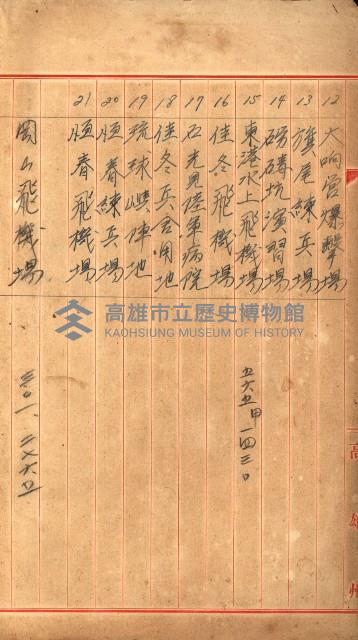 12 大响营爆擊場
13 旗尾練兵場
14 磅磷坑演習場
15 東港水上飛機場 五六五甲一四三〇
16 佳冬飛機場
17 石光見陸軍病院
18 佳冬兵舍用地
19 琉球嶼陣地
20 恒春練兵場
21 恒春飛機場
岡山飛機場
高雄州
高雄市立歷史博物館
KAOHSIUNG MUSEUM OF HISTORY